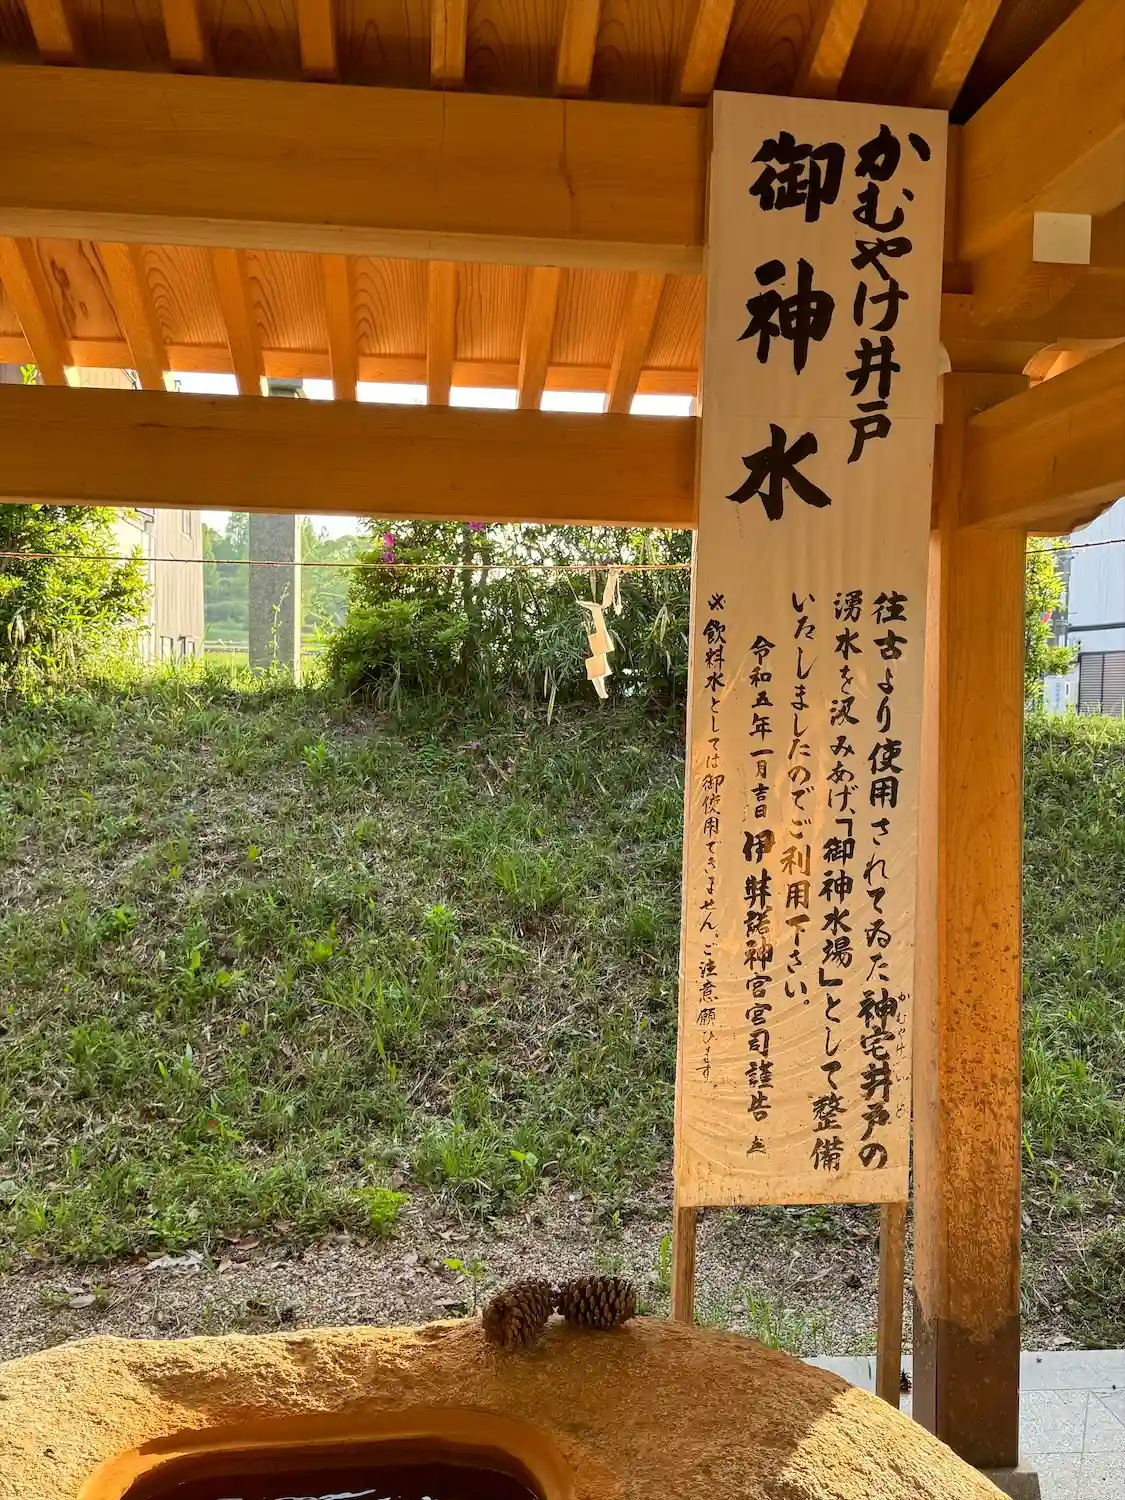 かむやけ井戸
御神水
往古より使用されてゐた神宅井戸の
かむやけいど
湧水を汲みあげ、「御神水場」として整備
いたしましたのでご利用下さい。
令和五年一月吉日 伊弉諾神宮宮司謹告
※飲料水としては御使用できません。ご注意願ひます